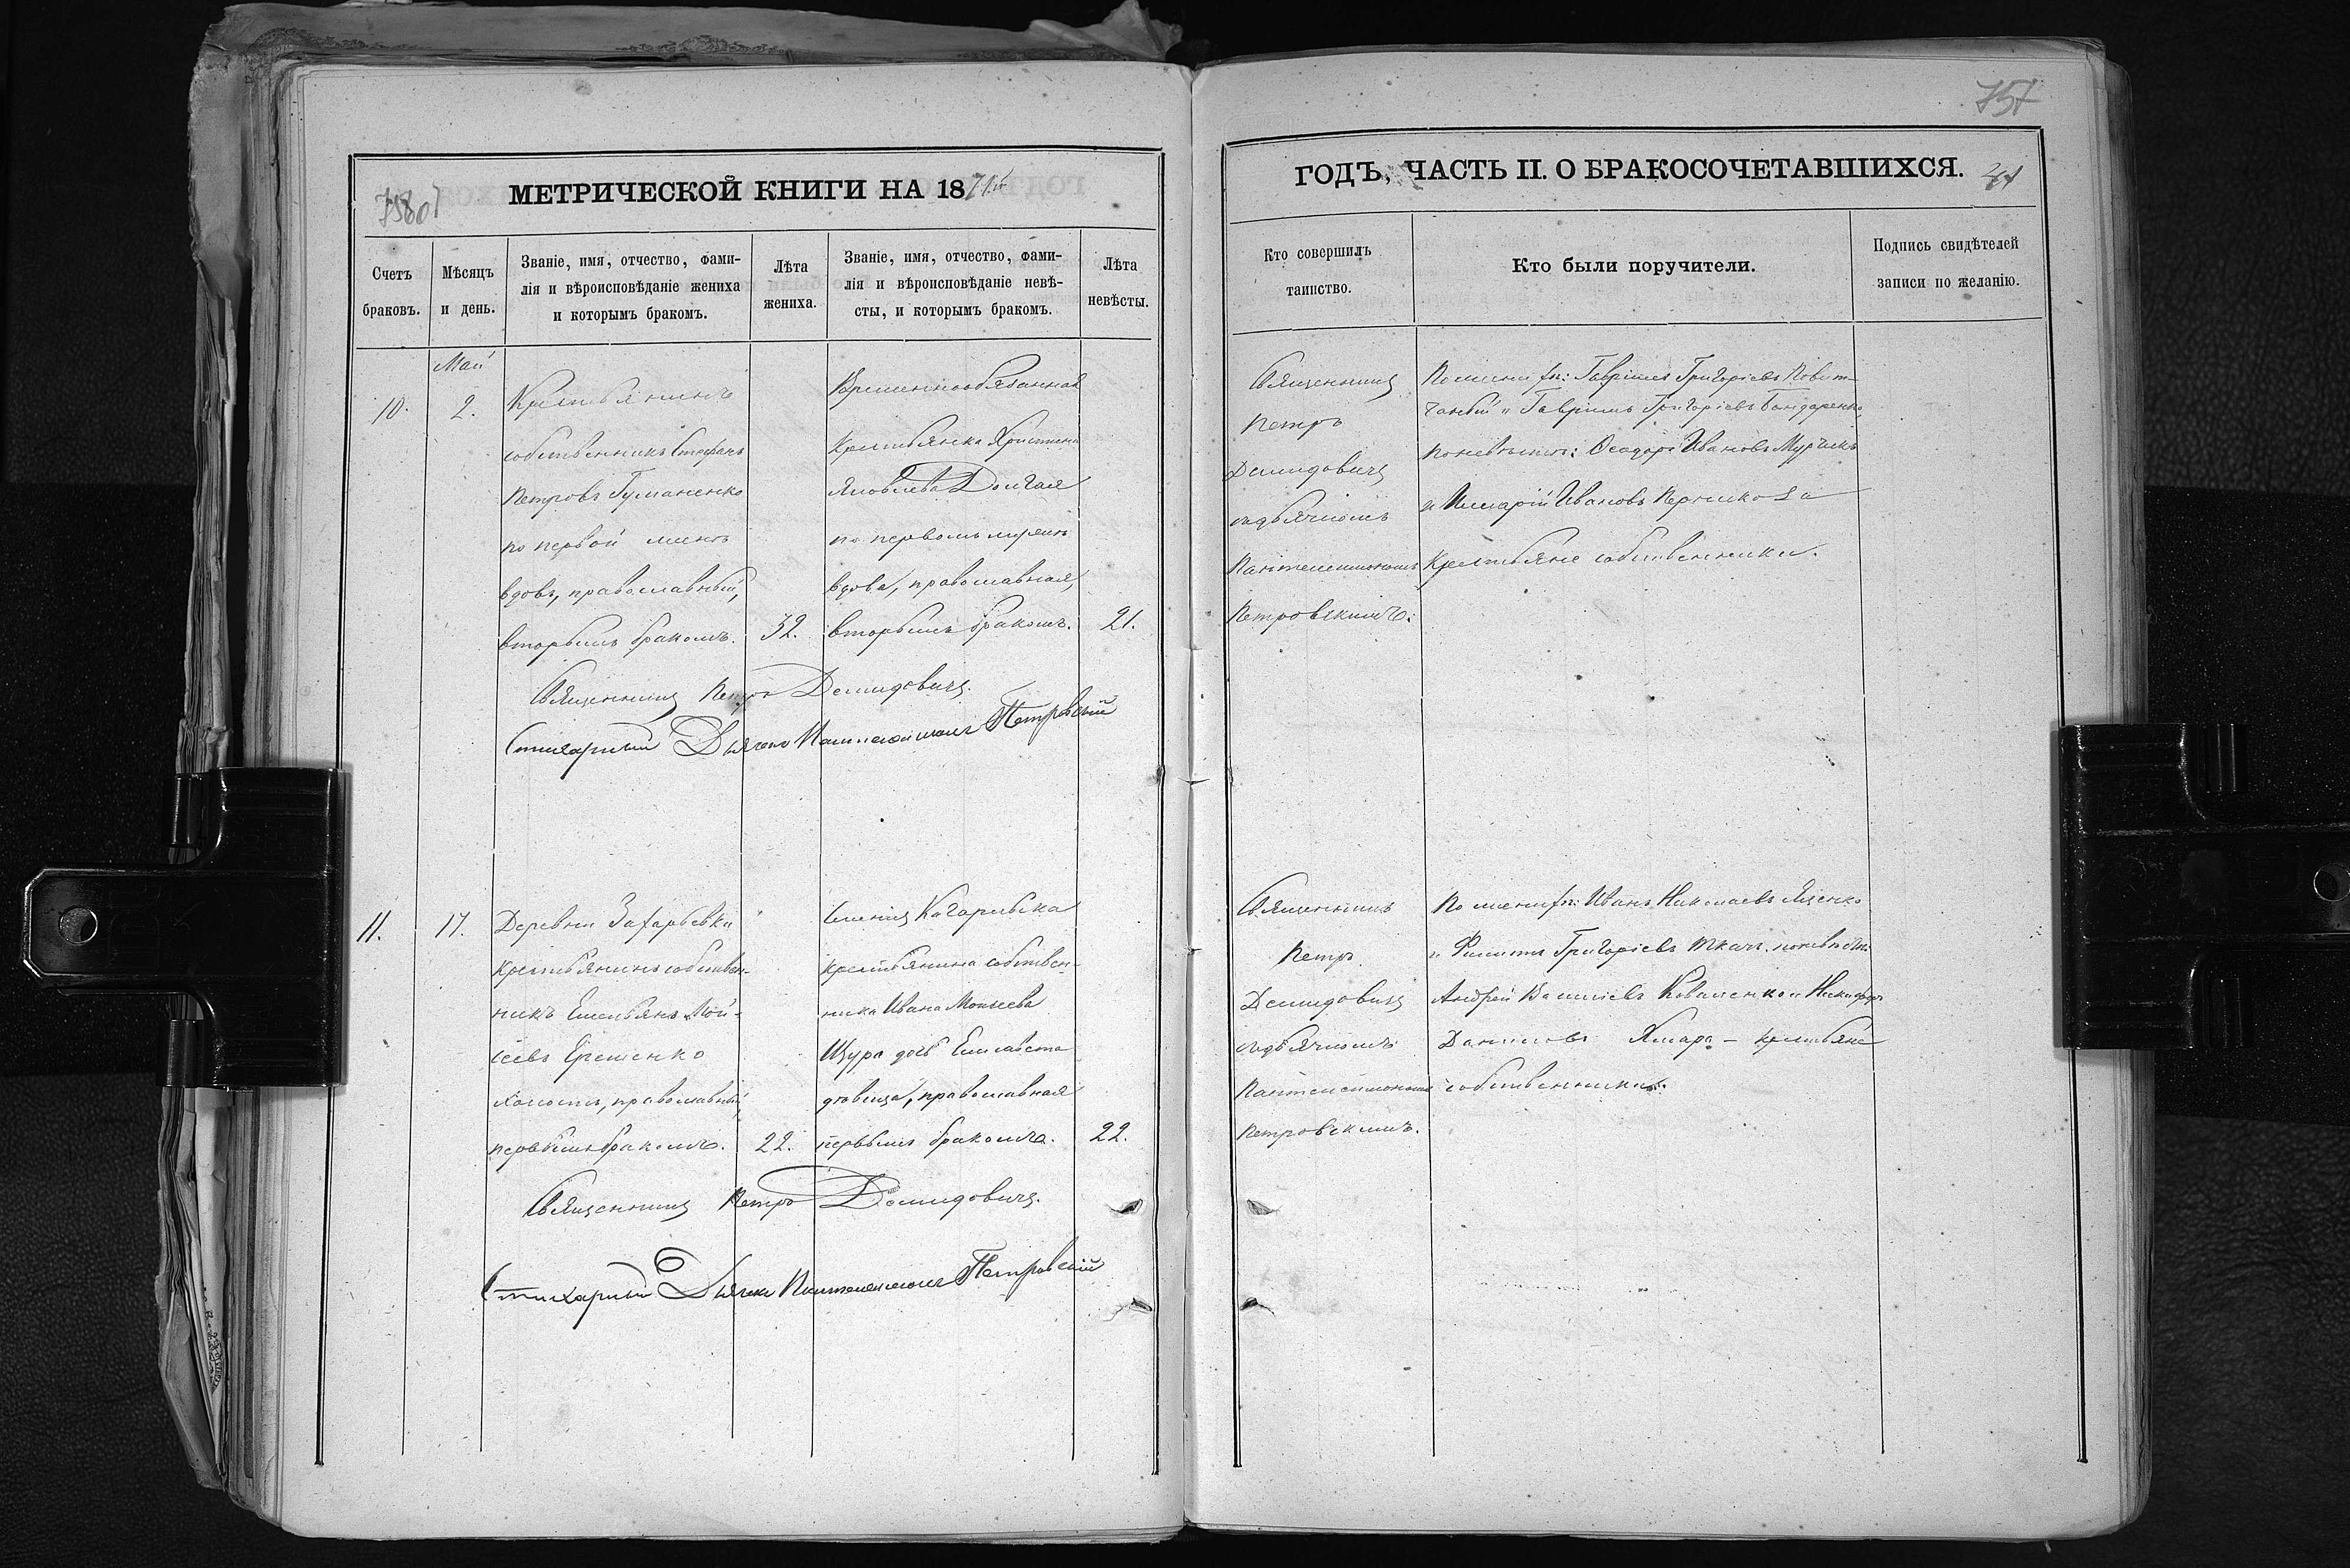 757
МЕТРИЧЕСКОЙ КНИГИ НА 1871й
ГОДЪ, ЧАСТЬ II. О БРАКОСОЧЕТАВШИХСЯ.
Счетъ браковъ.
Мѣсяцъ и день.
Званіе, имя, отчество, фами-
лія и вѣроисповѣданіе жениха
и которымъ бракомъ.
Лѣта жениха.
Званіе, имя, отчество, фами-
лія и вѣроисповѣданіе невѣ-
сты, и которымъ бракомъ.
Лѣта невѣсты.
Кто совершилъ
таинство.
Кто были поручители.
Подпись свидѣтелей
записи по желанію.
Май
10.
2.
Крестьянинъ
собственникъ Стефанъ
Петровъ Гуманенко
по первой женѣ
вдовъ, православный,
вторымъ бракомъ.
32.
Временнообязанная
крестьянка Христина
Яковлева Долгая
по первомъ мужѣ
вдова, православная,
вторымъ бракомъ.
21.
Священникъ Петръ Демидовичъ.
Стихарный Дьячекъ Пантелеимонъ Петровскій
Священникъ
Петръ
Демидовичъ
съ дьячкомъ
Пантелеимономъ
Петровскимъ.
По женихѣ: Гавріилъ Григоріевъ
и Гавріилъ Григоріевъ Бондаренко,
по невѣстѣ: Ѳеодоръ Ивановъ
и Иларій Ивановъ
крестьяне собственники.
11.
17.
Деревни Захарьевки
крестьянинъ собствен-
никъ Емельянъ Мои-
сеевъ Ерешенко
холостъ, православный,
первымъ бракомъ.
22.
Кагарлыка
крестьянина собствен-
ника Ивана Моисеева
Щура дочь Елисавета
дѣвица, православная
первымъ бракомъ.
22.
Священникъ Петръ Демидовичъ.
Стихарный Дьячекъ Пантелеимонъ Петровскій
Священникъ
Петръ
Демидовичъ
съ дьячкомъ
Пантелеимономъ
Петровскимъ.
По женихѣ: Иванъ Николаевъ Яценко
и Филиппъ Григоріевъ Ткачъ, по невѣстѣ:
Андрей Василіевъ Коваленко и Никифоръ
Даниловъ Хмара – крестьяне
собственники.